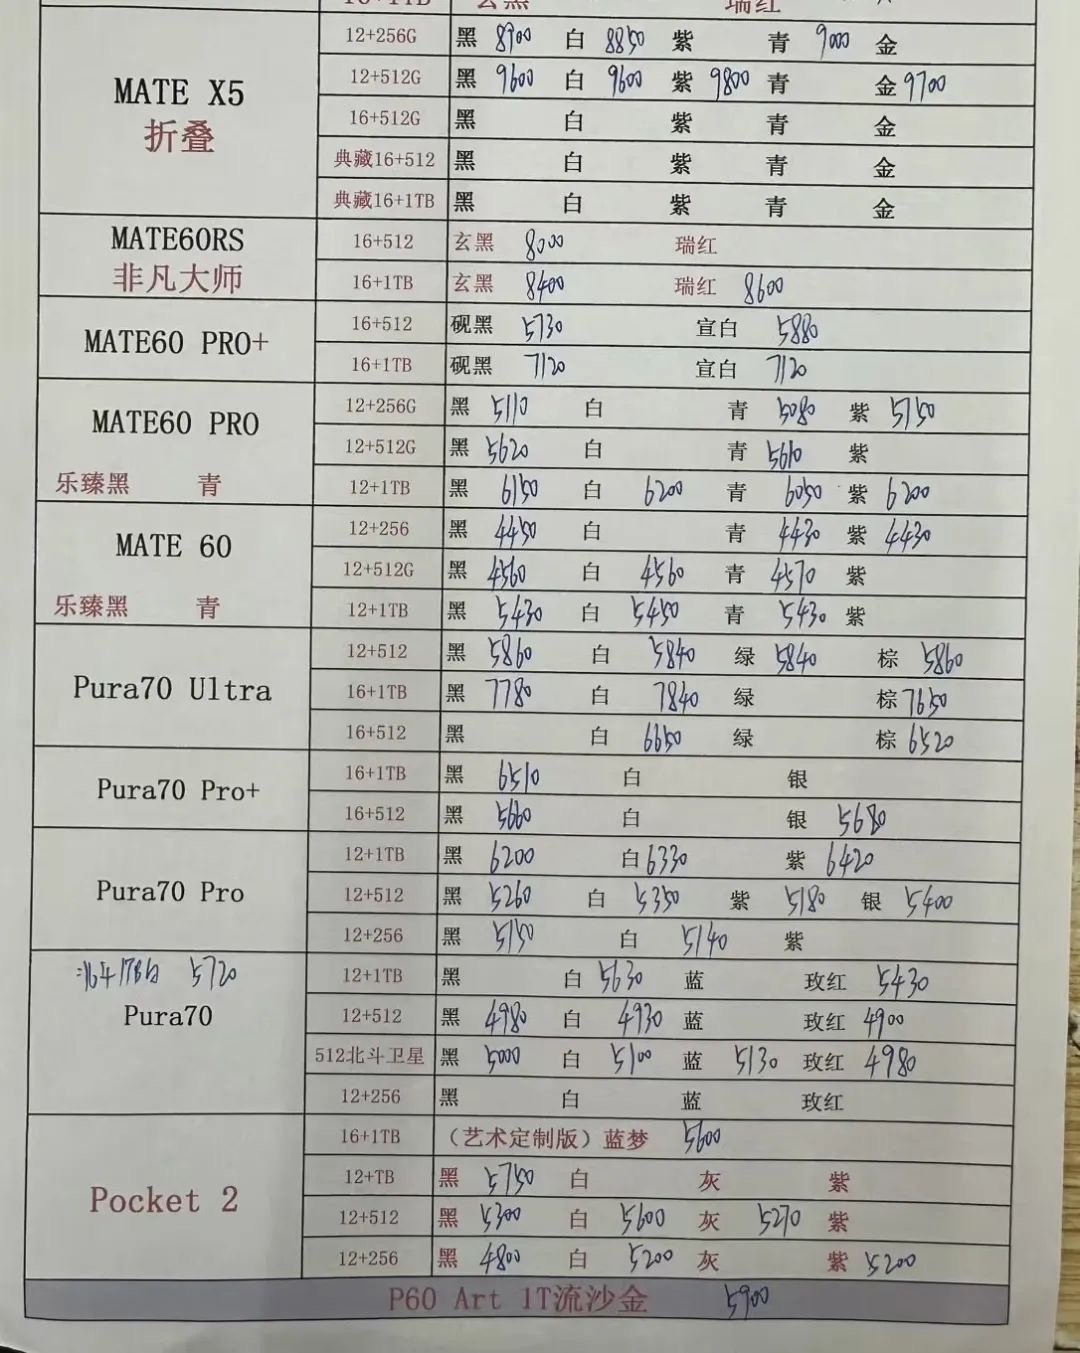 16+1TB 玄黑 瑞红
12+256G 黑 8900 白 8850 紫 青 9000 金
MATE X5
折叠
12+512G 黑 9600 白 9600 紫 9800 青 金 9700
16+512G 黑 白 紫 青 金
典藏16+512 黑 白 紫 青 金
典藏16+1TB 黑 白 紫 青 金
MATE60RS
非凡大师
16+512 玄黑 8000 瑞红
16+1TB 玄黑 8400 瑞红 8600
MATE60 PRO+
16+512 砚黑 5730 宣白 5880
16+1TB 砚黑 7120 宣白 7120
MATE60 PRO
乐臻黑 青
12+256G 黑 5110 白 青 5080 紫 5150
12+512G 黑 5620 白 青 5610 紫
12+1TB 黑 6150 白 6200 青 6050 紫 6200
MATE 60
乐臻黑 青
12+256 黑 4450 白 青 4430 紫 4430
12+512G 黑 4560 白 4560 青 4570 紫
12+1TB 黑 5430 白 5450 青 5430 紫
Pura70 Ultra
12+512 黑 5860 白 5840 绿 5840 棕 5860
16+1TB 黑 7780 白 7840 绿 棕 7650
16+512 黑 白 6650 绿 棕 6520
Pura70 Pro+
16+1TB 黑 6510 白 银
16+512 黑 5660 白 银 5680
Pura70 Pro
12+1TB 黑 6200 白 6330 紫 6420
12+512 黑 5260 白 5350 紫 5180 银 5400
12+256 黑 5150 白 5140 紫
5720
Pura70
12+1TB 黑 白 5630 蓝 玫红 5430
12+512 黑 4980 白 4930 蓝 玫红 4900
512北斗卫星 黑 5000 白 5100 蓝 5130 玫红 4980
12+256 黑 白 蓝 玫红
Pocket 2
16+1TB （艺术定制版）蓝梦 5600
12+TB 黑 5750 白 灰 紫
12+512 黑 5300 白 5600 灰 5270 紫
12+256 黑 4800 白 5200 灰 紫 5200
P60 Art 1T流沙金 5900